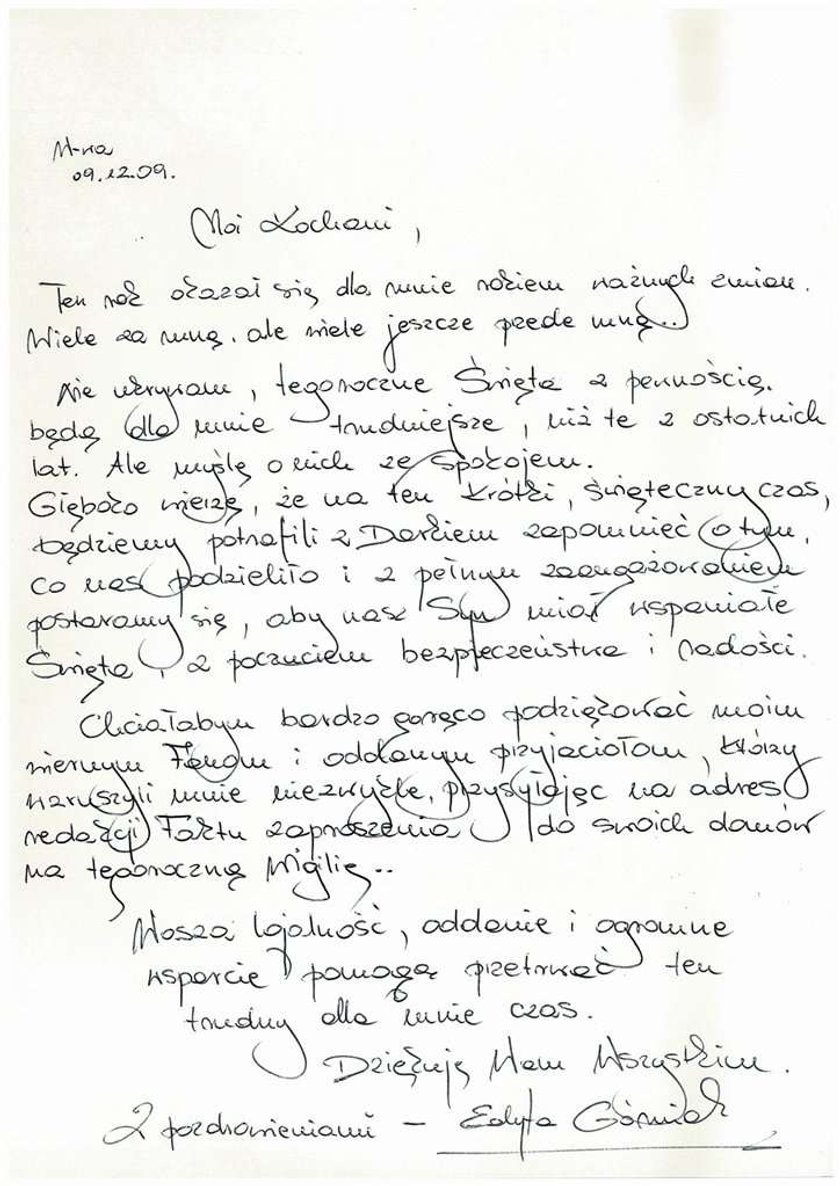 W-wa
09.12.09.
Moi Kochani,
Ten rok okazał się dla mnie rokiem ważnych zmian.
Wiele za mną. ale wiele jeszcze przede mną..
Nie ukrywam, tegoroczne Święta z pewnością.
będą dla mnie trudniejsze, niż te z ostatnich
lat. Ale myślę o nich ze spokojem.
Głęboko wierzę, że na ten krótki, świąteczny czas,
będziemy potrafili z Darkiem zapomnieć o tym,
co nas podzieliło i z pełnym zaangażowaniem
postaramy się, aby nasz Syn miał wspaniałe
Święta, z poczuciem bezpieczeństwa i radości.
Chciałabym bardzo gorąco podziękować moim
wiernym Fanom i oddanym przyjaciołom, którzy
wzruszyli mnie niezwykle, przysyłając na adres
redakcji Faktu zaproszenia do swoich domów
na tegoroczną Wigilię..
Wasza lojalność, oddanie i ogromne
wsparcie pomogą przetrwać ten
trudny dla mnie czas.
Dziękuję Wam Wszystkim.
Z pozdrowieniami - Edyta Górniak